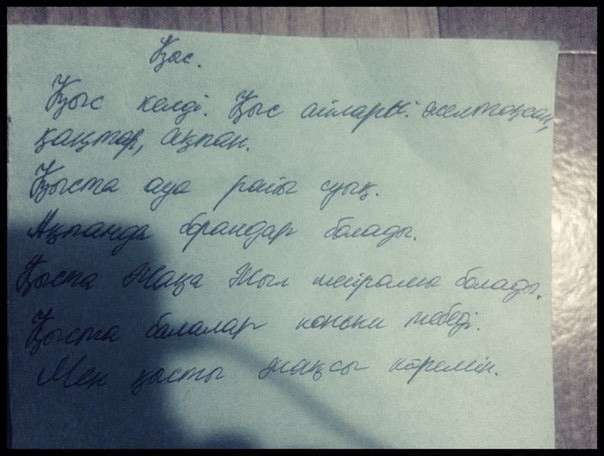 Қыс.
Қыс келді. Қыс айлары: желтоқсан,
қаңтар, ақпан.
Қыста ауа райы суық.
Ақпанда борандар болады.
Қыста Жаңа Жыл мейрамы болады.
Қыста балалар коньки тебеді.
Мен қысты жақсы көремін.